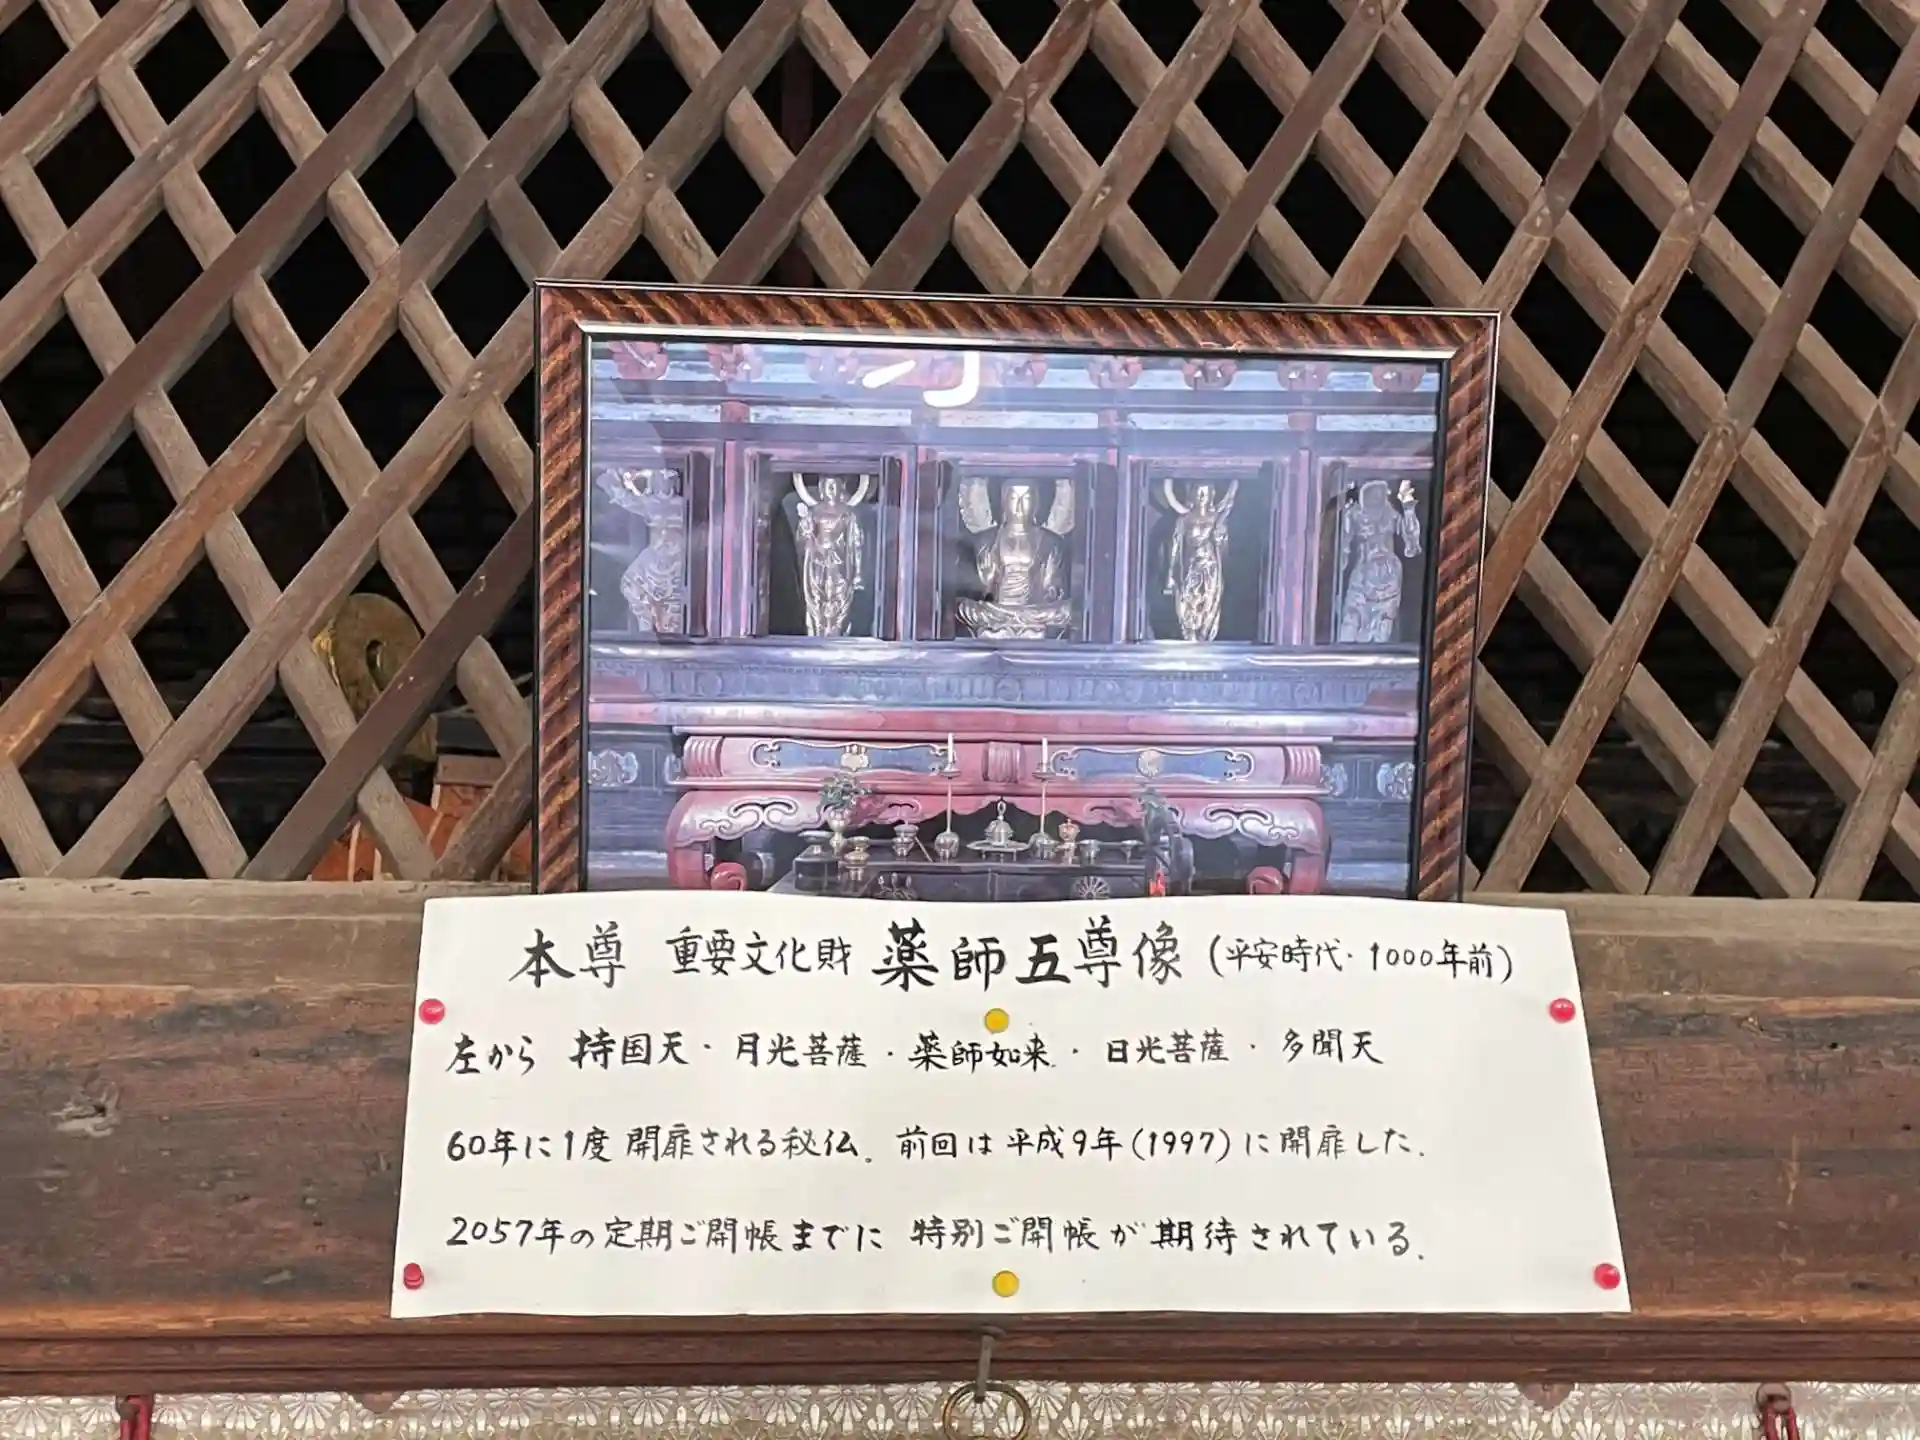 本尊 重要文化財 薬師五尊像 (平安時代・1000年前)
左から 持国天・月光菩薩・薬師如来・日光菩薩・多聞天
60年に1度開扉される秘仏。前回は平成9年(1997)に開扉した。
2057年の定期ご開帳までに 特別ご開帳が期待されている。